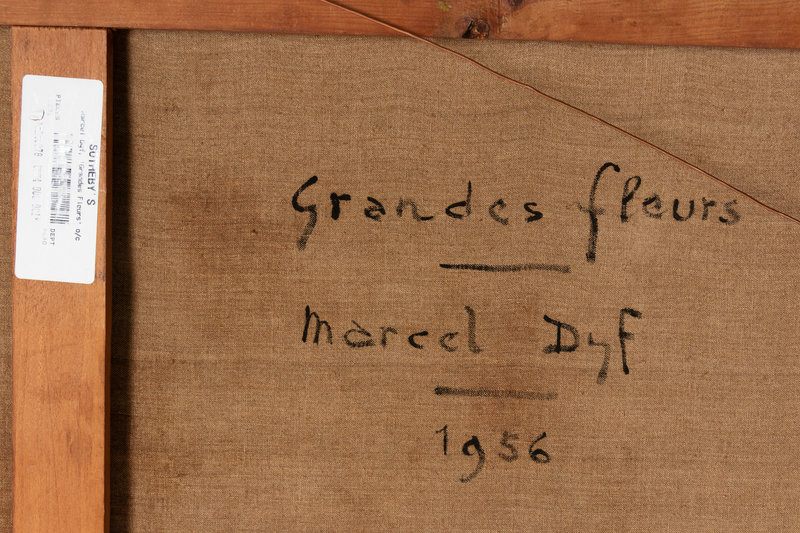 Grandes fleurs
Marcel Dyf
1956
SOTHEBY'S
Marcel Dyf, "Grandes Fleurs" o/c
DEPT